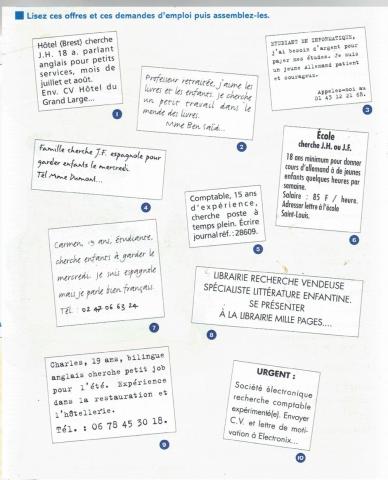 Lisez ces offres et ces demandes d'emploi puis assemblez-les.
Hôtel (Brest) cherche
J.H. 18 a. parlant
anglais pour petits
services, mois de
juillet et août.
Env. CV Hôtel du
Grand Large...
1
Professeur retraitée, j'aime les
livres et les enfants. Je cherche
un petit travail dans le
monde des livres.
Mme Ben Saïd...
2
ETUDIANT EN INFORMATIQUE,
j'ai besoin d'argent pour
payer mes études. Je suis
un jeune allemand patient
et courageux.
Appelez-moi au
01 43 12 21 68.
3
Famille cherche J.F. espagnole pour
garder enfants le mercredi.
Tél Mme Dumont...
4
Comptable, 15 ans
d'expérience,
cherche poste à
temps plein. Écrire
journal réf.: 28609.
5
École
cherche J.H. ou J.F.
18 ans minimum pour donner
cours d'allemand à de jeunes
enfants quelques heures par
semaine.
Salaire : 85 F / heure.
Adresser lettre à l'école
Saint-Louis.
6
Carmen, 19 ans, étudiante,
cherche enfants à garder le
mercredi. Je suis espagnole
mais je parle bien français.
Tél : 01 47 06 63 24
7
LIBRAIRIE RECHERCHE VENDEUSE
SPÉCIALISTE LITTÉRATURE ENFANTINE.
SE PRÉSENTER
À LA LIBRAIRIE MILLE PAGES....
8
Charles, 19 ans, bilingue
anglais cherche petit job
pour l'été. Expérience
dans la restauration et
l'hôtellerie.
Tél. : 06 78 45 30 18.
9
URGENT :
Société électronique
recherche comptable
expérimenté(e). Envoyer
C.V. et lettre de moti-
vation à Electronix...
10